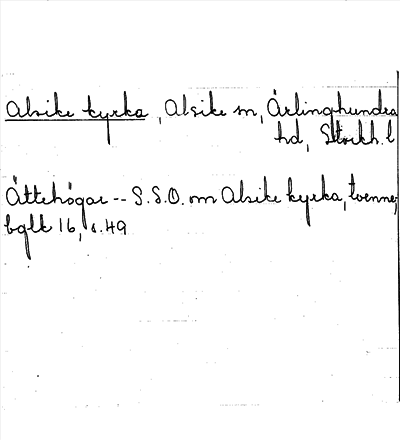 Alsike kyrka, Alsike sn, Ärlinghundra
hd, Stockh. l
Ättehögar -- S.S.O. om Alsike kyrka, tvenne,
bglt 16, s. 49